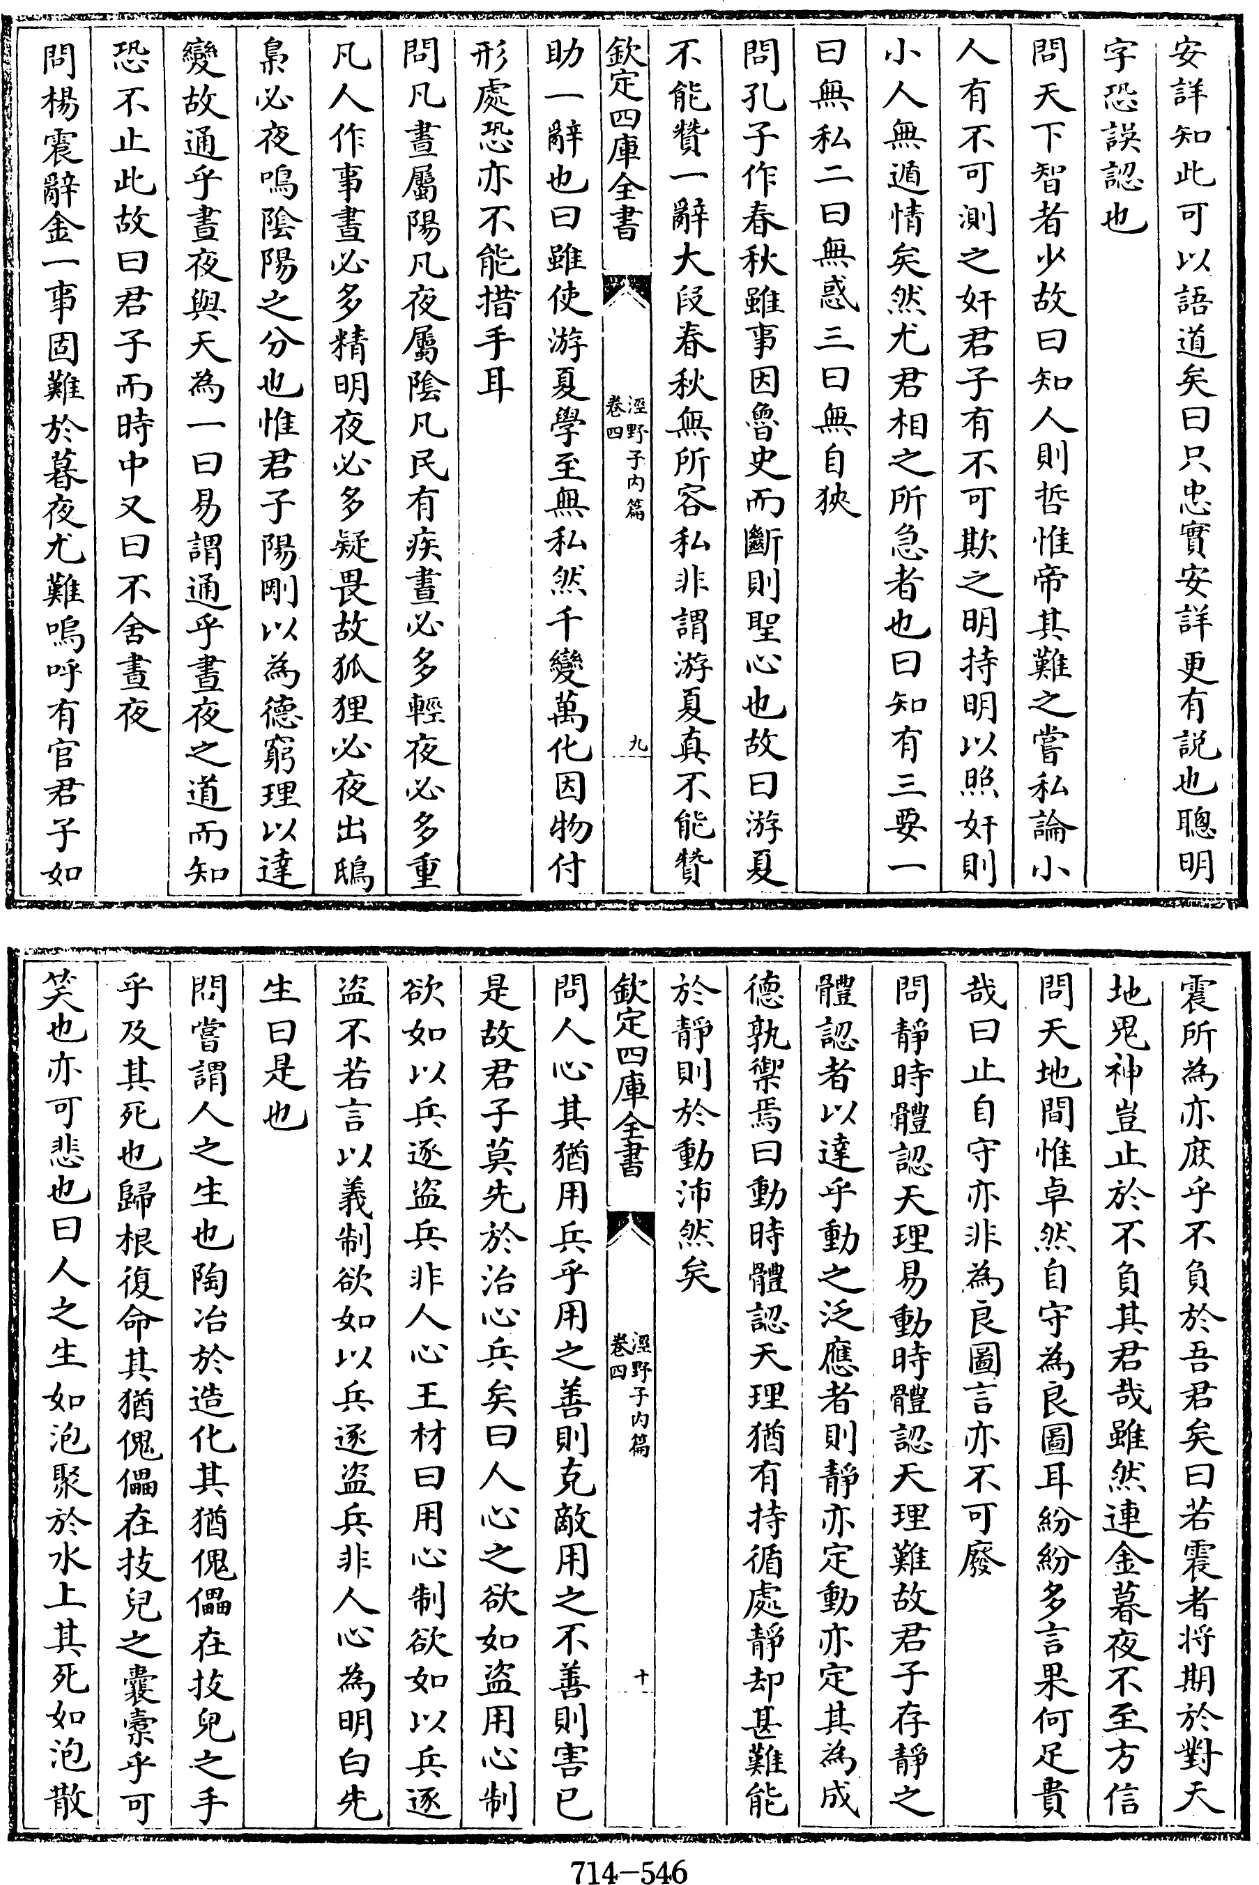 安詳知此可以語道矣曰只忠實安詳更有説也聰明
字恐誤認也
問天下智者少故曰知人則哲惟帝其難之嘗私論小
人有不可測之奸君子有不可欺之明持明以照奸則
小人無遁情矣然尤君相之所急者也曰知有三要一
曰無私二曰無惑三曰無自狹
問孔子作春秋雖事因魯史而斷則聖心也故曰游夏
不能贊一辭大段春秋無所容私非謂游夏真不能贊
欽定四庫全書
涇野子內篇
卷四
九
助一辭也曰雖使游夏學至無私然千變萬化因物付
形處恐亦不能措手耳
問凡晝屬陽凡夜屬陰凡民有疾晝必多輕夜必多重
凡人作事晝必多精明夜必多疑畏故狐狸必夜出鴟
梟必夜鳴陰陽之分也惟君子陽剛以為德窮理以達
變故通乎晝夜與天為一曰易謂通乎晝夜之道而知
恐不止此故曰君子而時中又曰不舍晝夜
問楊震辭金一事固難於暮夜尤難嗚呼有官君子如
震所為亦庶乎不負於吾君矣曰若震者將期於對天
地鬼神豈止於不負其君哉雖然連金暮夜不至方信
問天地間惟卓然自守為良圖耳紛紛多言果何足貴
哉曰止自守亦非為良圖言亦不可廢
問靜時體認天理易動時體認天理難故君子存靜之
體認者以達乎動之泛應者則靜亦定動亦定其為成
德孰禦焉曰動時體認天理猶有持循處靜却甚難能
於靜則於動沛然矣
欽定四庫全書
涇野子內篇
卷四
十
問人心其猶用兵乎用之善則克敵用之不善則害已
是故君子莫先於治心兵矣曰人心之欲如盜用心制
欲如以兵逐盜兵非人心王材曰用心制欲如以兵逐
盜不若言以義制欲如以兵逐盜兵非人心為明白先
生曰是也
問嘗謂人之生也陶冶於造化其猶傀儡在技兒之手
乎及其死也歸根復命其猶傀儡在技兒之囊橐乎可
笑也亦可悲也曰人之生如泡聚於水上其死如泡散
714-546